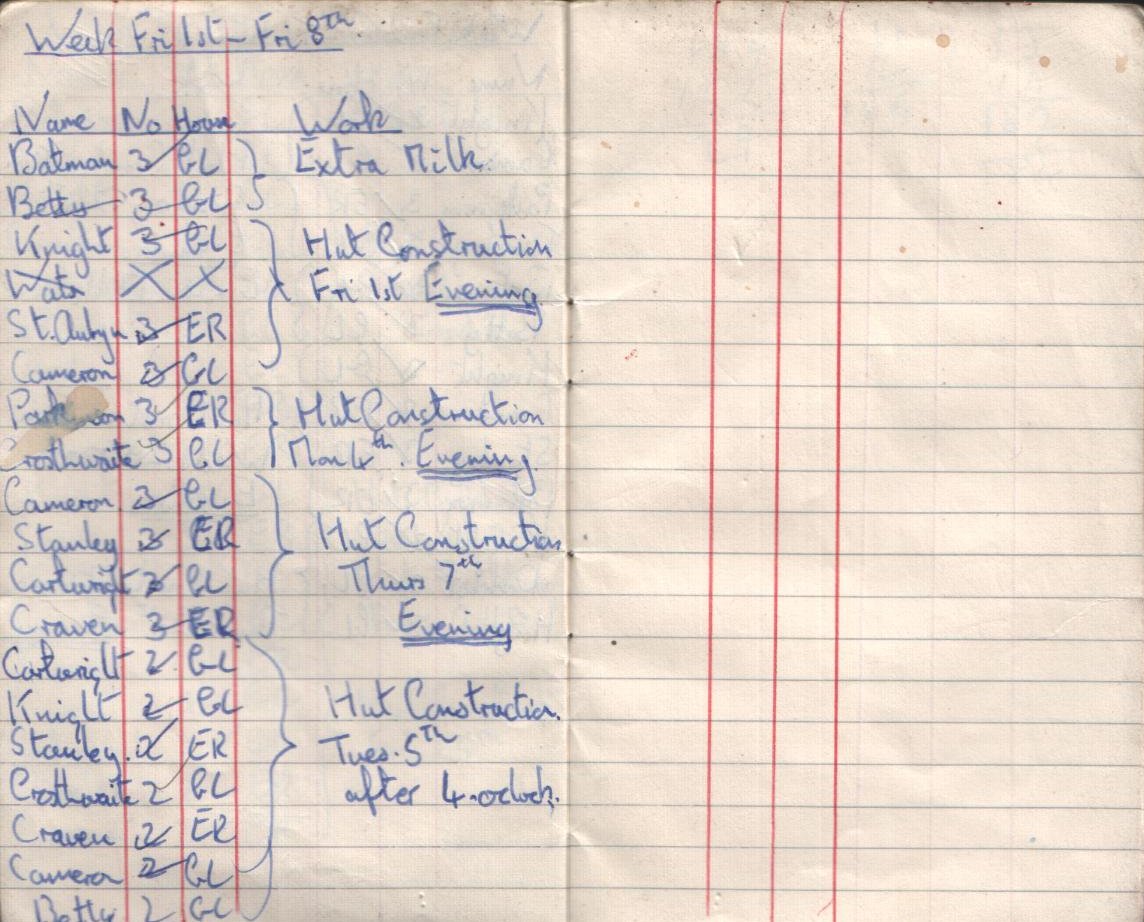 Week Fri 1st - Fri 8th
Name No House Work
Batman 3 GL Extra Milk.
Betty 3 GL
Knight 3 GL Hut Construction
Wats X X Fri 1st Evening
St. Aubyn 3 ER
Cameron 3 GL
Parkinson 3 ER Hut Construction
Crosthwaite 3 GL Mon 4th. Evening
Cameron 3 GL
Stanley 3 ER Hut Construction
Cartwright 3 GL Thurs 7th
Craven 3 ER Evening
Cartwright 2 GL
Knight 2 GL Hut Construction.
Stanley. 2 ER Tues. 5th
Crosthwaite 2 GL after 4.oclock.
Craven 2 ER
Cameron 2 GL
Betty 2 GL